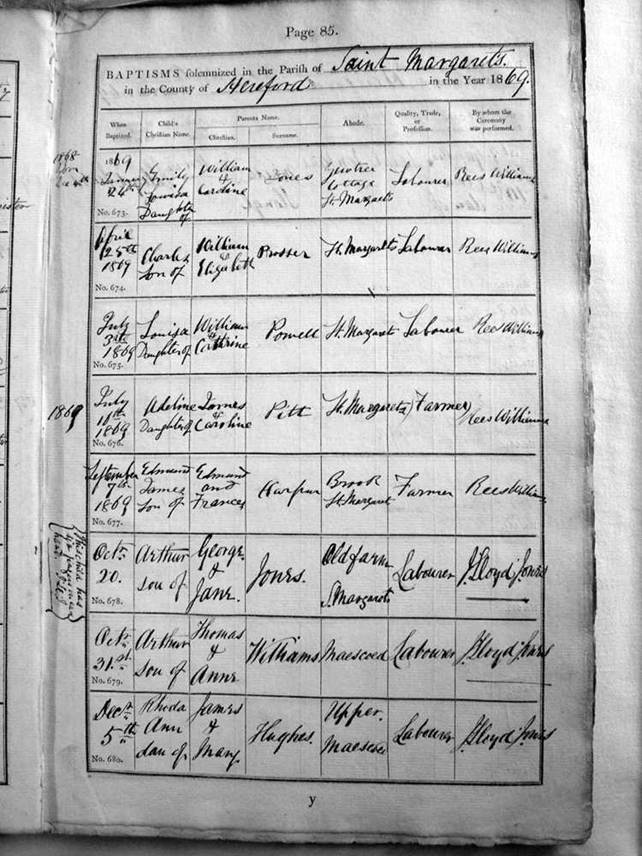 Page 85.
BAPTISMS solemnized in the Parish of Saint Margarets.
in the County of Hereford in the Year 1869.
When Baptized. Child's Christian Name. Parents Name. Abode. Quality, Trade, or Profession. By whom the Ceremony was performed.
Christian. Surname.
1869
24th
No. 673.
Emily
Louisa
Daughter
of
William
&
Caroline
Jones
Cottage
St. Margarets
Labourer
Rees Williams
April
25th
1869
No. 674.
Charles
Son of
William
&
Elizabeth
Prosser
St. Margarets
Labourer
Rees Williams
July
3rd
1869
No. 675.
Louisa
Daughter of
William
&
Cathrine
Powell
St. Margarets
Labourer
Rees Williams
1869
July
11th
1869
No. 676.
Adeline
Daughter of
James
&
Caroline
Pitt
St. Margarets
Farmer
Rees Williams
September
7th
1869
No. 677.
Edmund
James
Son of
Edmund
and
Frances
Brook
St. Margaret
Farmer
Rees William
Octr
20.
No. 678.
Arthur
son of
George
&
Jane.
Jones.
Old farm
St. Margarets
Labourer
J Lloyd Jones
Octr
31.st
No. 679.
Arthur
son of
Thomas
&
Anne
Williams
Maescoed
Labourer
J Lloyd Jones
Decr
5th
No. 680.
Rhoda
Ann
dau of
James
&
Mary.
Hughes.
Upper.
Maescoed
Labourer
J Lloyd Jones
y